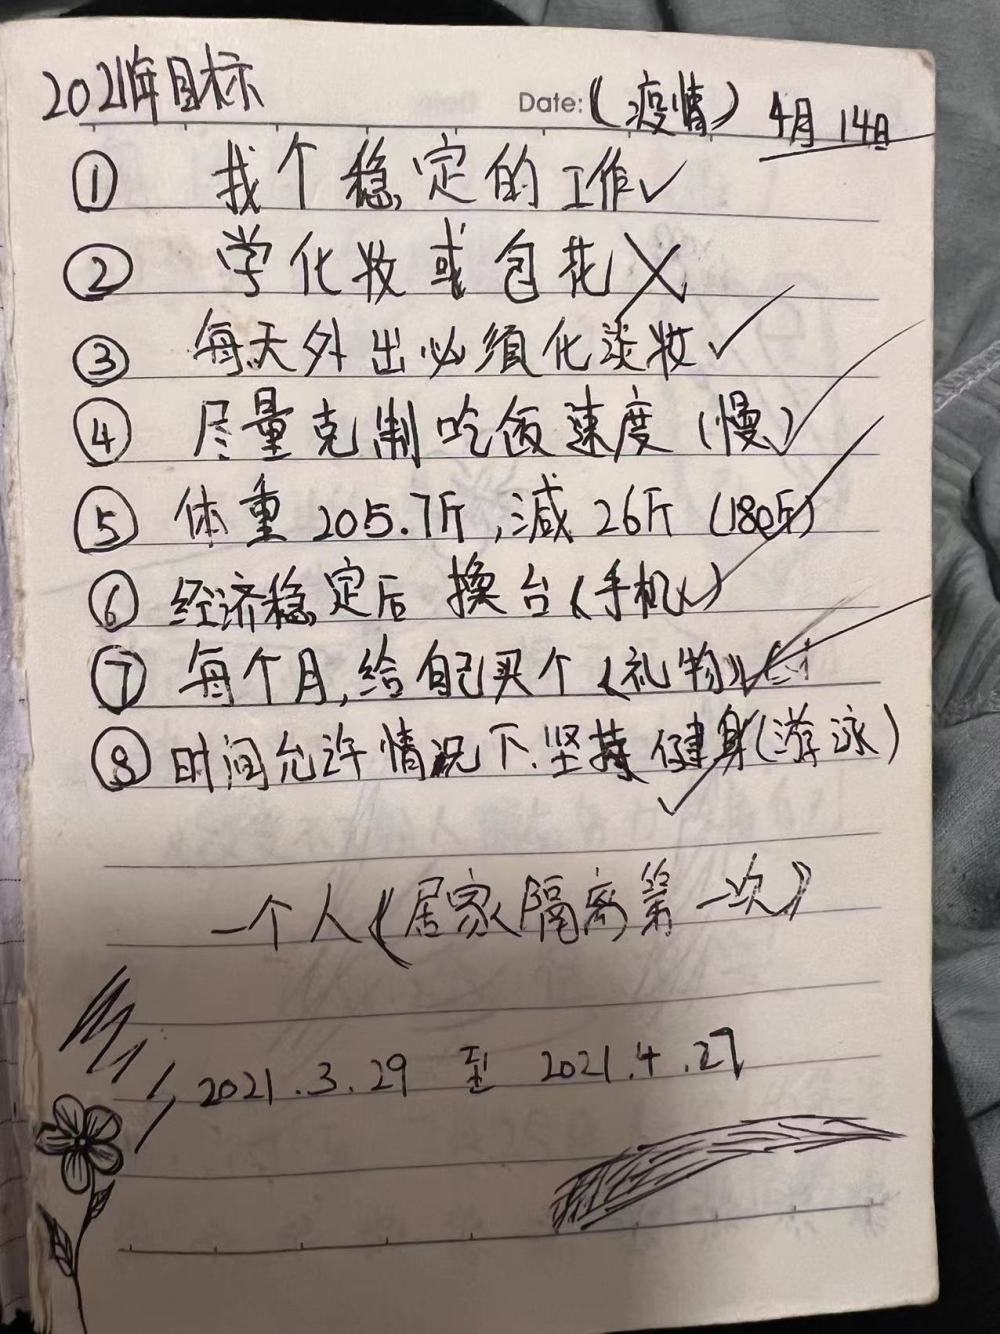 2021年目标 Date:《疫情》 4月14日
① 找个稳定的工作✓
② 学化妆或包花╳
③ 每天外出必须化淡妆✓
④ 尽量克制吃饭速度(慢)✓
⑤ 体重205.7斤,减26斤(180斤)
⑥ 经济稳定后 换台《手机》
⑦ 每个月,给自己买个《礼物》✓
⑧ 时间允许情况下.坚持健身(游泳)✓
一个人《居家隔离第一次》
2021.3.29 至 2021.4.27